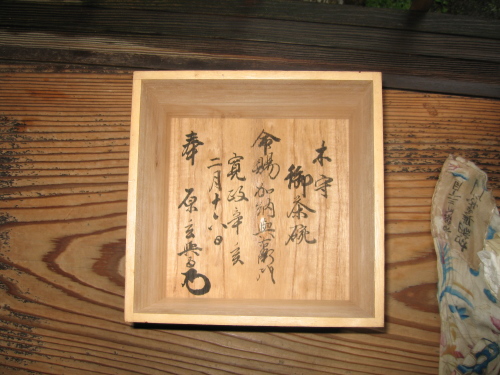 木守
御茶碗
命賜加納與兵衛門
寛政辛亥
二月十六日
奉 原玄與